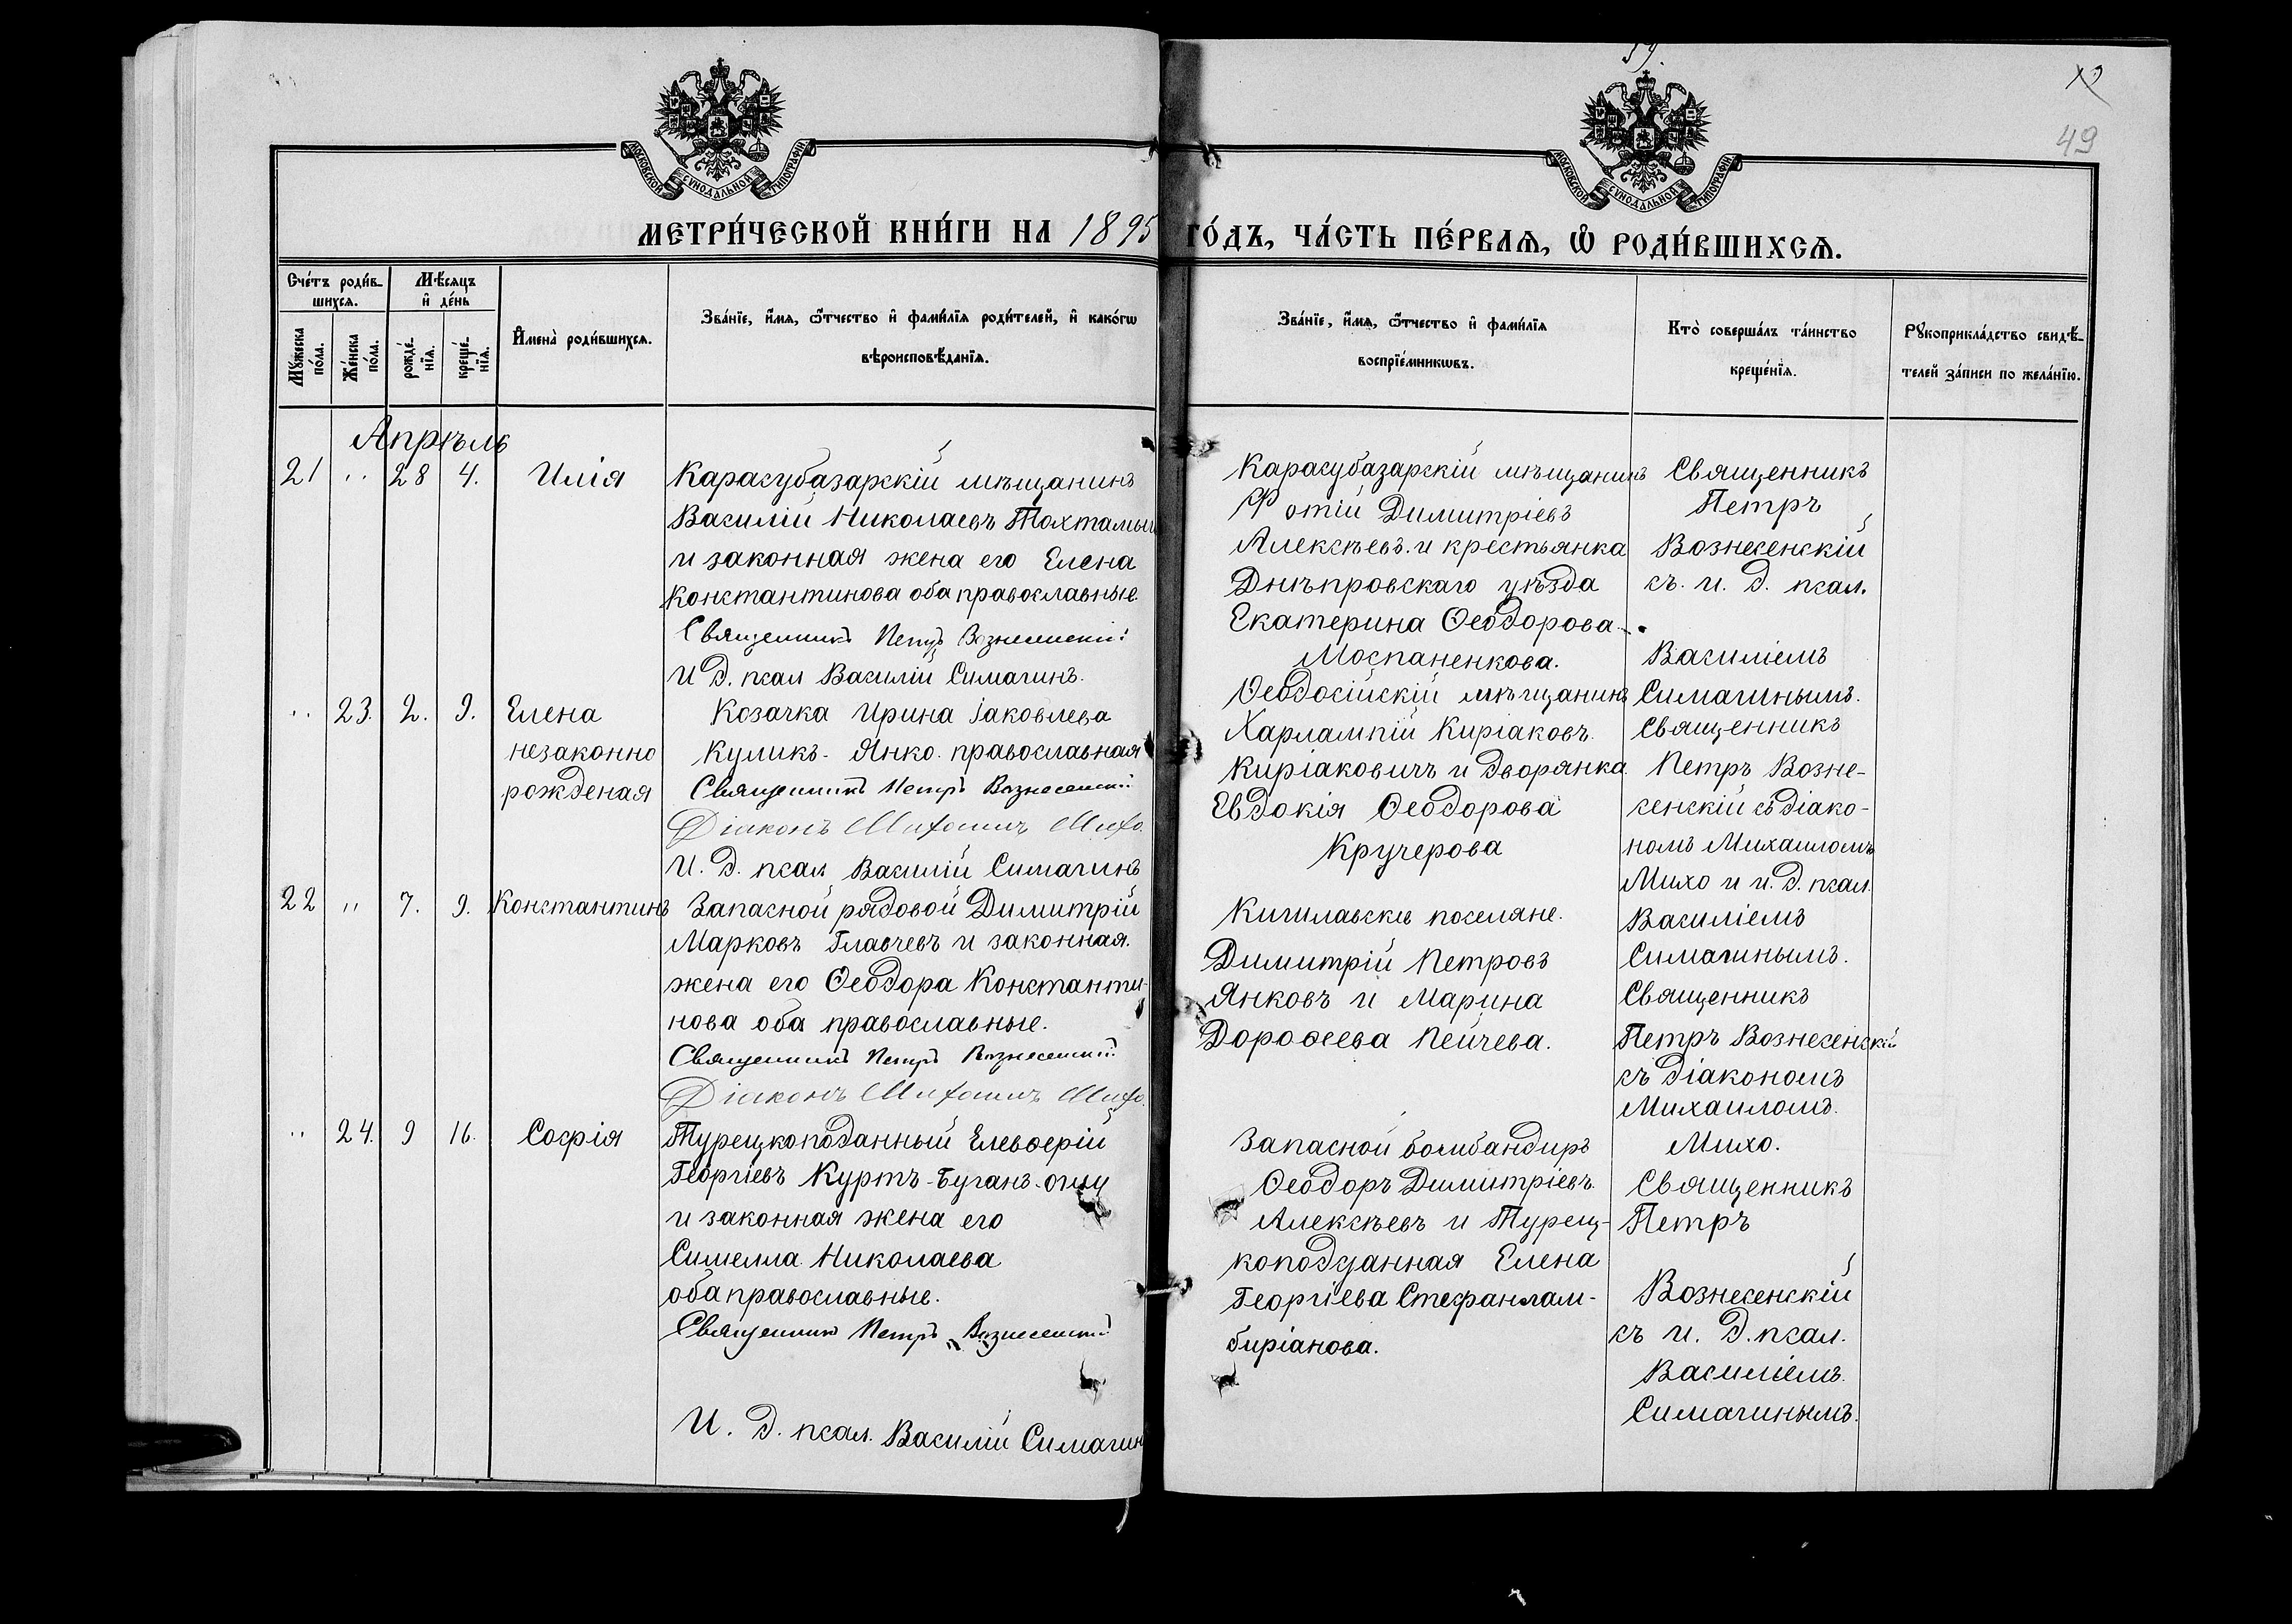 59.
49
МОСКОВСКОЙ СѴНОДАЛЬНОЙ ТИПОГРАФІИ
МОСКОВСКОЙ СѴНОДАЛЬНОЙ ТИПОГРАФІИ
МЕТРИ́ЧЕСКОЙ КНИ́ГИ НА 1895 ГО́ДЪ, ЧА́СТЬ ПЕ́РВАЯ, Ѡ РОДИ́ВШИХСЯ.
Сче́тъ роди́в-
шихся.
Мꙋ́жеска
по́ла.
Же́нска
по́ла.
Мѣ́сяцъ
и҆ де́нь
рожде́-
нїя.
креще́-
нїя.
И҆мена̀ роди́вшихся.
Зва́нїе, и҆́мя, ѻ҆́тчество и҆ фами́лїя роди́телей, и҆ како́гѡ
вѣроисповѣ́данїя.
Зва́нїе, и҆́мя, ѻ҆́тчество и҆ фами́лїя
воспрїе́мникѡвъ.
Кто̀ соверша́лъ та́инство
креще́нїя.
Рꙋкоприкла́дство свидѣ́-
телей за́писи по жела́нїю.
Апрѣль
21 " 28 4. Илія
Карасубазарскій мѣщанинъ
Василій Николаевъ Тохтамыш
и законная жена его Елена
Константинова оба православные.
Священникъ Петръ Вознесенскій
И Д. псал Василій Симагинъ.
Карасубазарскій мѣщанинъ
Фотій Димитріевъ
Алексѣевъ. и крестьянка
Днѣпровскаго уѣзда
Екатерина Ѳеодорова
Моспаненкова.
Священникъ
Петръ
Вознесенскій
съ. и. д. псал.
Василіемъ
Симагинымъ.
" 23. 2. 9. Елена
незаконно
рожденая
Козачка Ирина Іаковлева
Куликъ-Янко. православная
Священникъ Петръ Вознесенскій
Діаконъ Михаилъ Михо.
И. Д. псал Василій Симагинъ
Ѳеодосійскій мѣщанинъ
Харлампій Киріаковъ.
Киріаковичъ и дворянка
Евдокія Ѳеодорова
Кручерова
Священникъ
Петръ Возне-
сенскій съ діако-
номъ Михаиломъ
Михо и и. д. псал.
Василіемъ
Симагинымъ.
22 " 7. 9. Константинъ
Запасной рядовой Димитрій
Марковъ Главчевъ и законная.
жена его Ѳеодора Константи-
нова оба православные.
Священникъ Петръ Вознесенскій
Діаконъ Михаилъ Михо.
поселяне.
Димитрій Петровъ
Янковъ и Марина
Дороѳеева Пейчева.
Священникъ
Петръ Вознесенскій
съ діакономъ
Михаиломъ.
Михо.
" 24. 9 16. Софія
Турецкоподанный Елевѳерій
Георгіевъ Куртъ-Буганъ-оглу
и законная жена его
Симелла Николаева
оба православные.
Священникъ Петръ Вознесенскій
И. Д. псал. Василій Симагин
Запасной бомбандиръ
Ѳеодоръ Димитріевъ.
Алексѣевъ и Турец-
коподданная Елена
Георгіева Стефанлам-
биріанова.
Священникъ
Петръ
Вознесенскій
съ и. д. псал.
Василіемъ.
Симагинымъ.